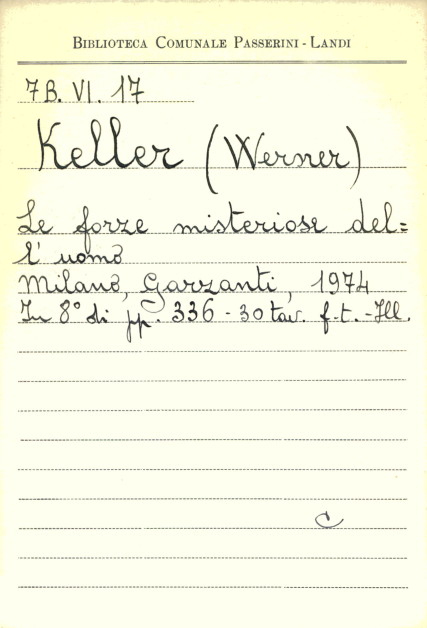 BIBLIOTECA COMUNALE PASSERINI-LANDI
7B. VI. 17
Keller (Werner)
Le forze misteriose del=
l'uomo
Milano, Garzanti, 1974
In 8° di pp. 336 - 30 tav. f.t. - Ill.
C